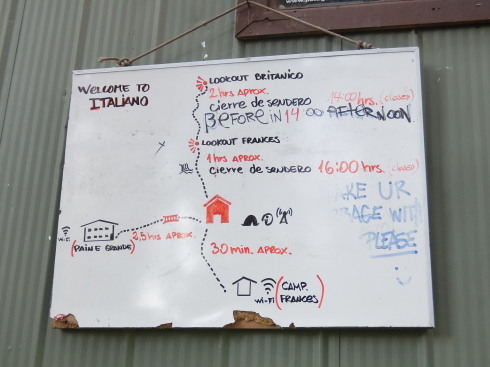 WELCOME TO
ITALIANO
LOOKOUT BRITANICO
2 hrs APROX.
cierre de SENDERO 14:00 hrs. (closed)
BEFORE IN 14 00 AFTERNOON
LOOKOUT FRANCES
1 hrs APROX.
cierre de SENDERO 16:00 hrs. (closed)
KE UR
BAGE WITH
PLEASE
wi-Fi
(PAINE GRANDE)
2,5 hrs APROX.
30 min. APROX.
wi-Fi
(CAMP. FRANCES)